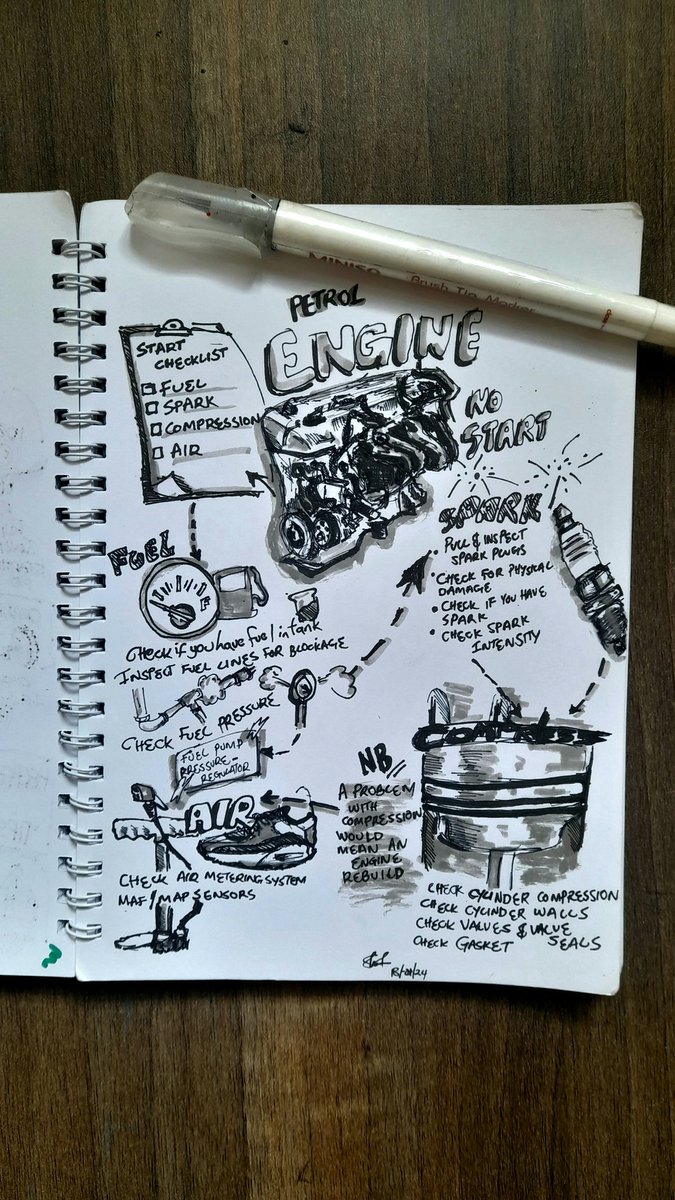 MINISO
Brush Tip Marker
PETROL
ENGINE
NO
START
START
CHECKLIST
FUEL
SPARK
COMPRESSION
AIR
FUEL
F
CHECK if you have fuel in tank
INSPECT FUEL LINES FOR BLOCKAGE
CHECK FUEL PRESSURE
FUEL PUMP
PRESSURE
REGULATOR
SPARK
• PULL & INSPECT
SPARK PLUGS
• CHECK FOR PHYSICAL
DAMAGE
• CHECK IF YOU HAVE
SPARK
• CHECK SPARK
INTENSITY
COMPRESS
CHECK CYLINDER COMPRESSION
CHECK CYLINDER WALLS
CHECK VALVES & VALVE
SEALS
CHECK GASKET
NB//
A PROBLEM
WITH
COMPRESSION
WOULD
MEAN AN
ENGINE
REBUILD
AIR
CHECK AIR METERING SYSTEM
MAF/MAP SENSORS